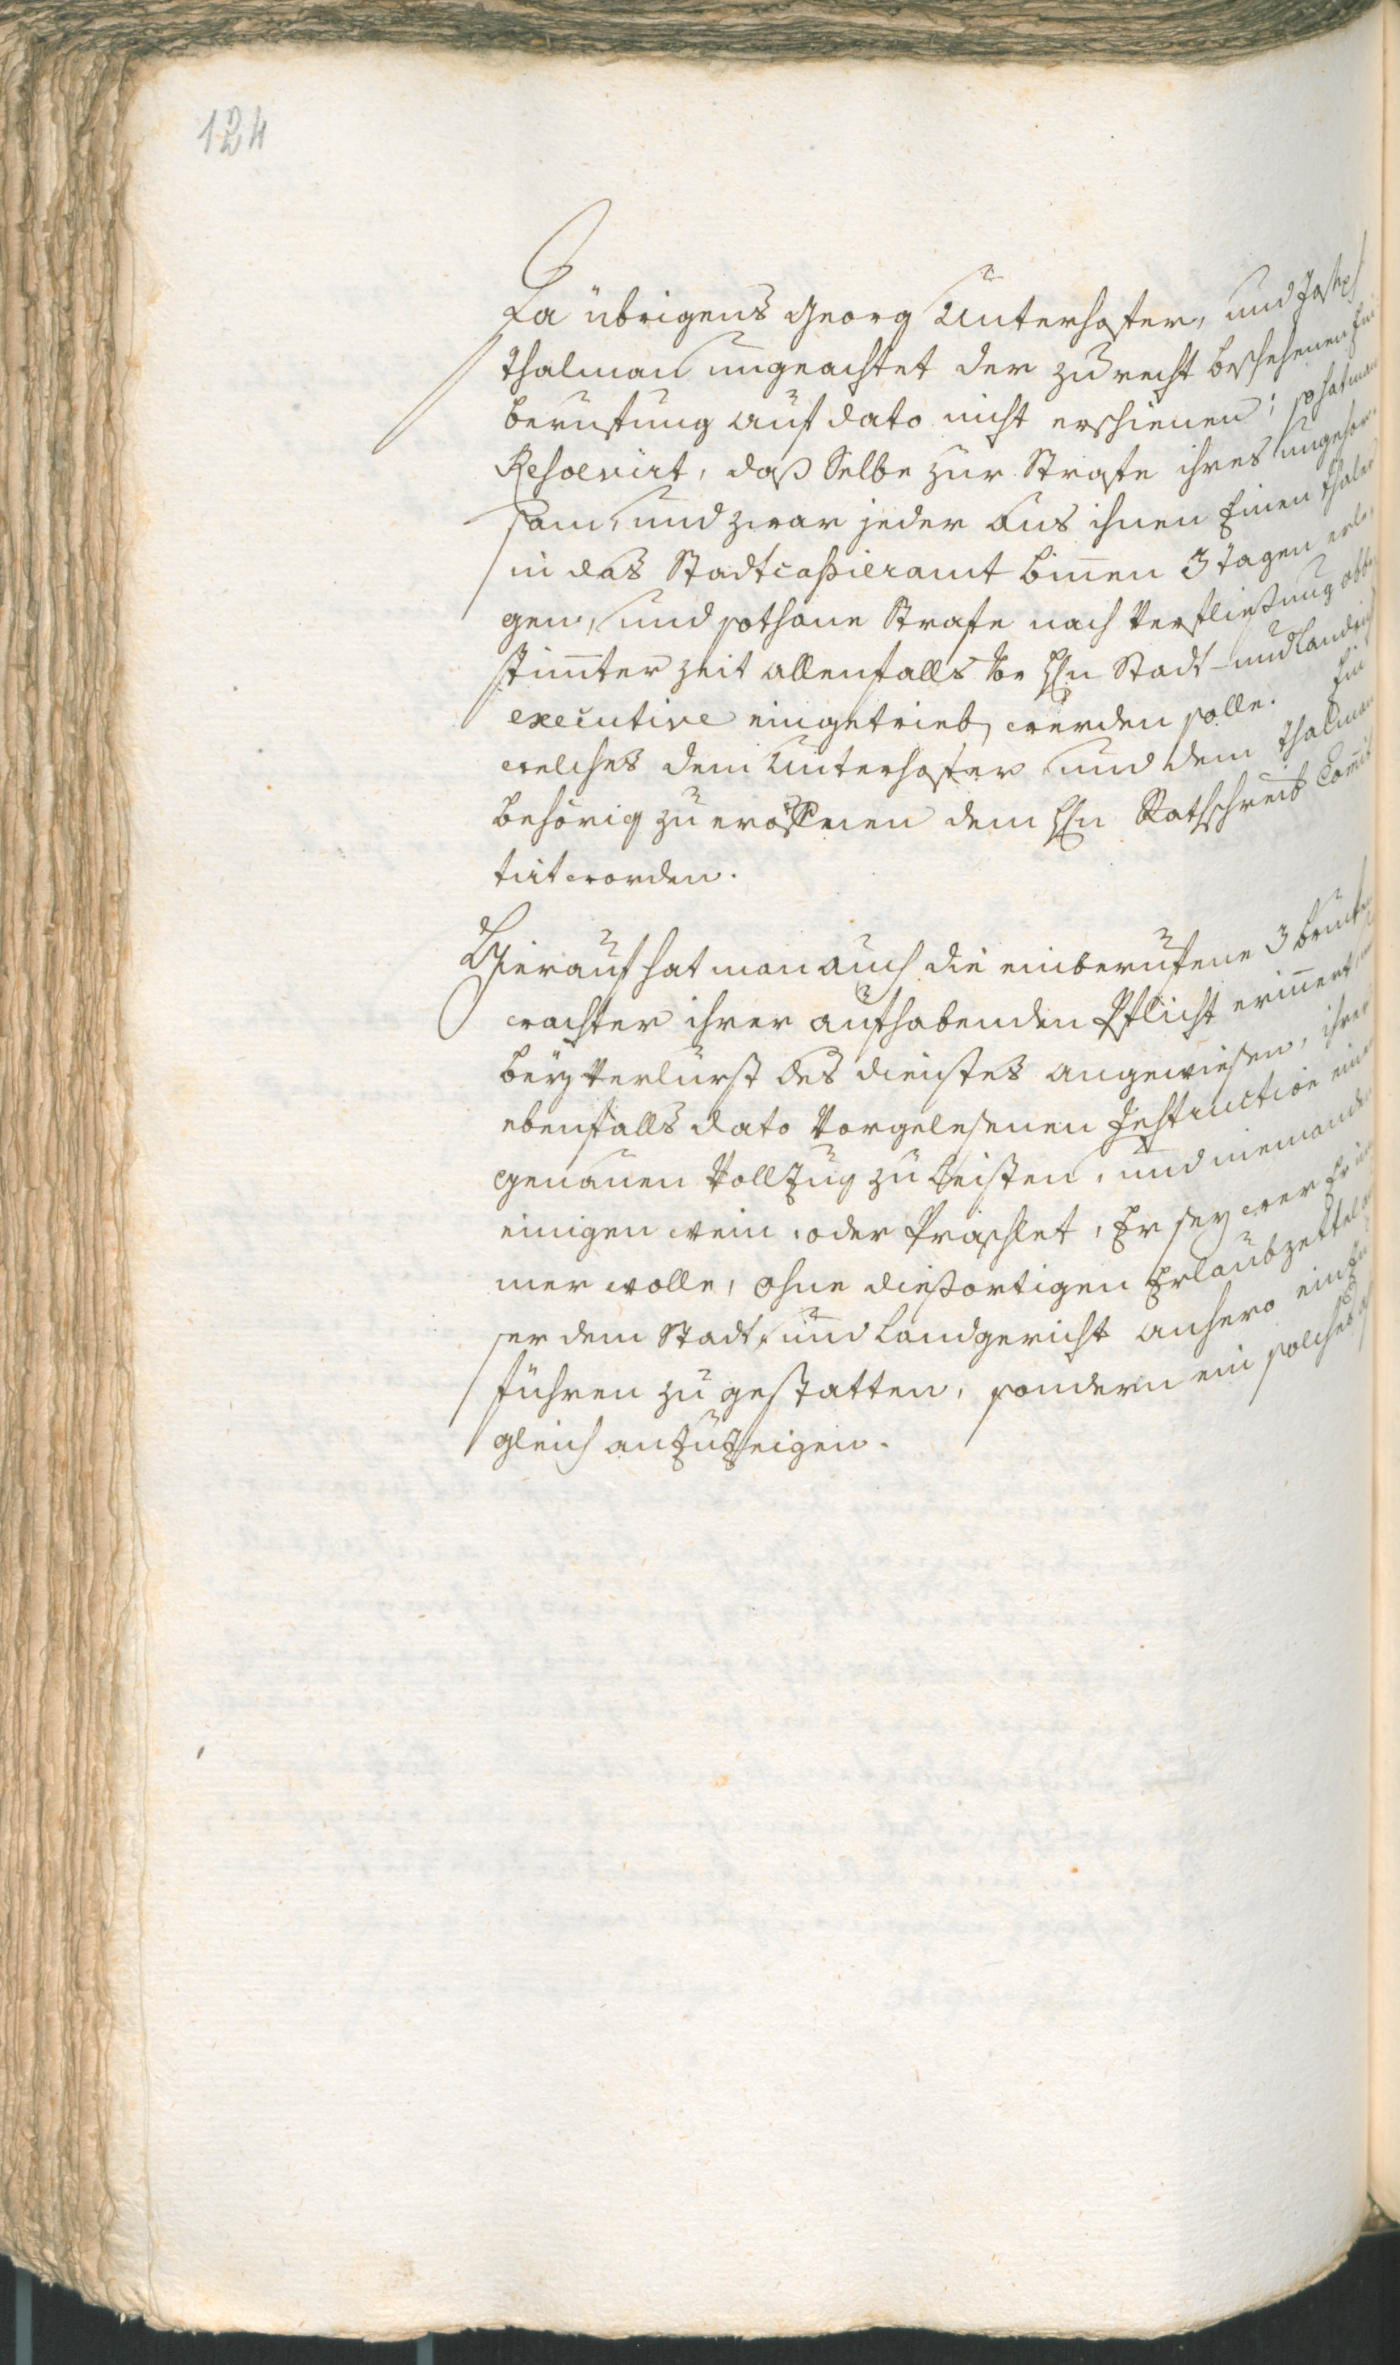 124
Da übrigens Georg Unterhofer, und Joseph
Thalman ungeachtet der zu recht beschehenen Ein
beruffung auf dato nicht erschienen; so hat man
Resolvirt, daß Selbe zur Straffe ihres ungehor
sam, und zwar jeder aus ihnen Einen thaler
in das Stadtcaßieramt binnen 3 tagen erle
gen, und sothane Straffe nach verfließung obbe
stimter zeit allenfalls Hrn Stadt- und Landrich
executive eingetrieb werden solle. Ein
welches dem Unterhofer und dem Thalman
behörig zu eröffnen dem Hrn Rathschreib Comit
tirt worden.
Hierauf hat man auch die einberufene 3 bruck
wachter ihrer aufhabenden Pflicht erinnert,
bey verlurst des dienstes angewiesen, ihrer
ebenfalls dato vorgelesenen Instruction einen
genauen Vollzug zu leisten, und niemanden
einigen wein, oder Präschlet, Er sey wer Er im
mer wolle, ohne dießortigen Erlaubzettel
ser dem Stadt- und Landgericht anhero einzu
führen zu gestatten, sondern ein solches
gleich anzuzeigen.